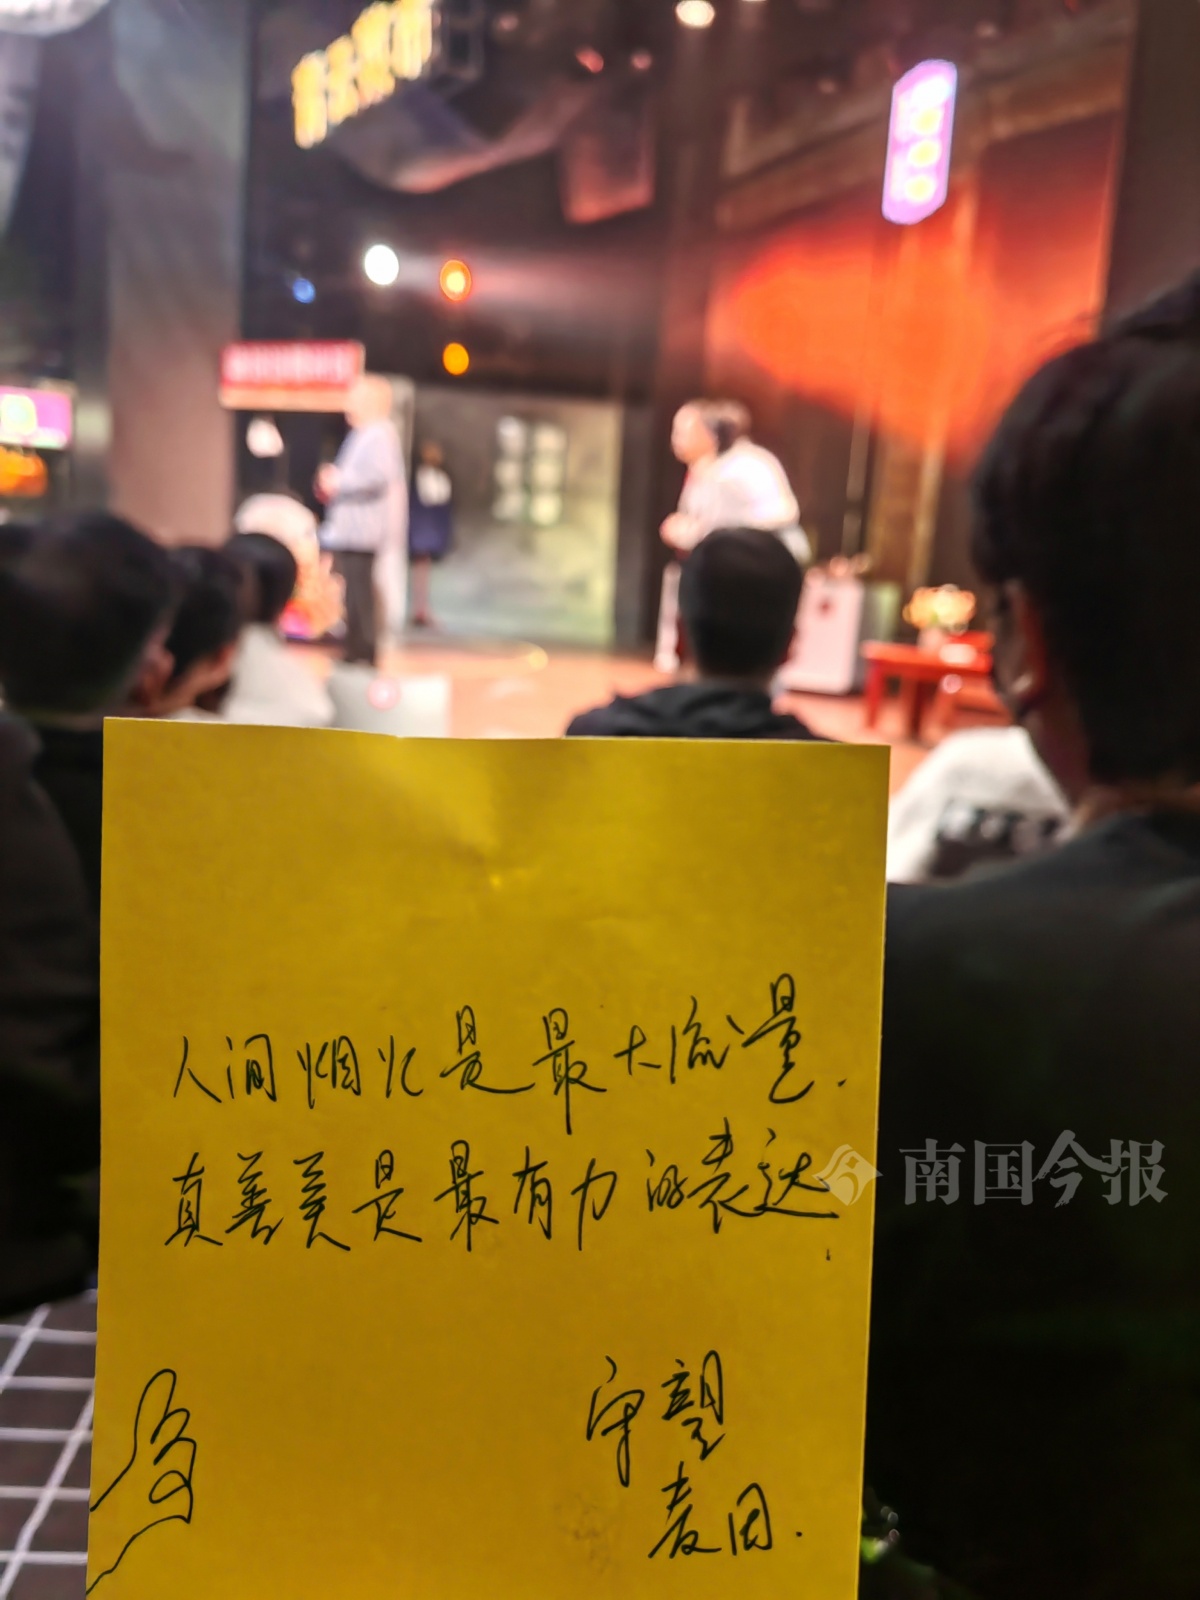 人间烟火是最大流量.
真善美是最有力的表达.
南国今报
守望
麦田.